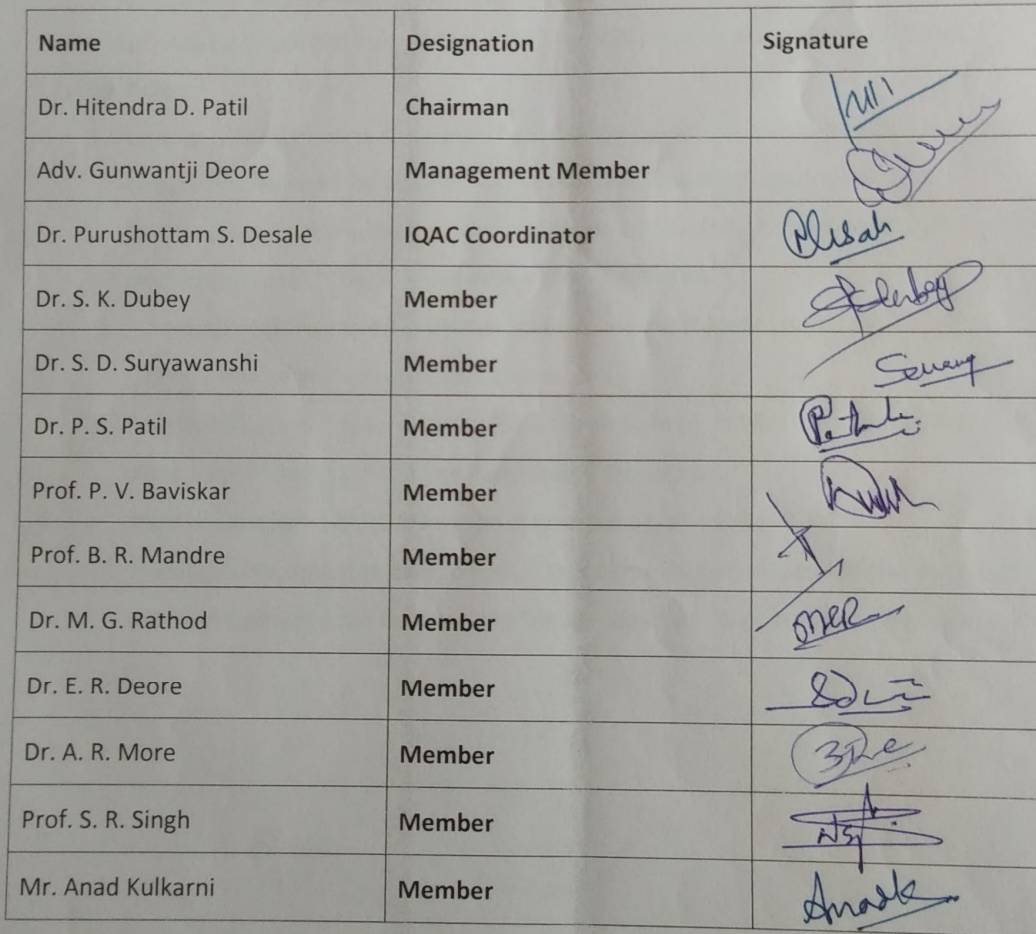 Name Designation Signature
Dr. Hitendra D. Patil Chairman
Adv. Gunwantji Deore Management Member
Dr. Purushottam S. Desale IQAC Coordinator
Dr. S. K. Dubey Member
Dr. S. D. Suryawanshi Member
Dr. P. S. Patil Member
Prof. P. V. Baviskar Member
Prof. B. R. Mandre Member
Dr. M. G. Rathod Member
Dr. E. R. Deore Member
Dr. A. R. More Member
Prof. S. R. Singh Member
Mr. Anad Kulkarni Member